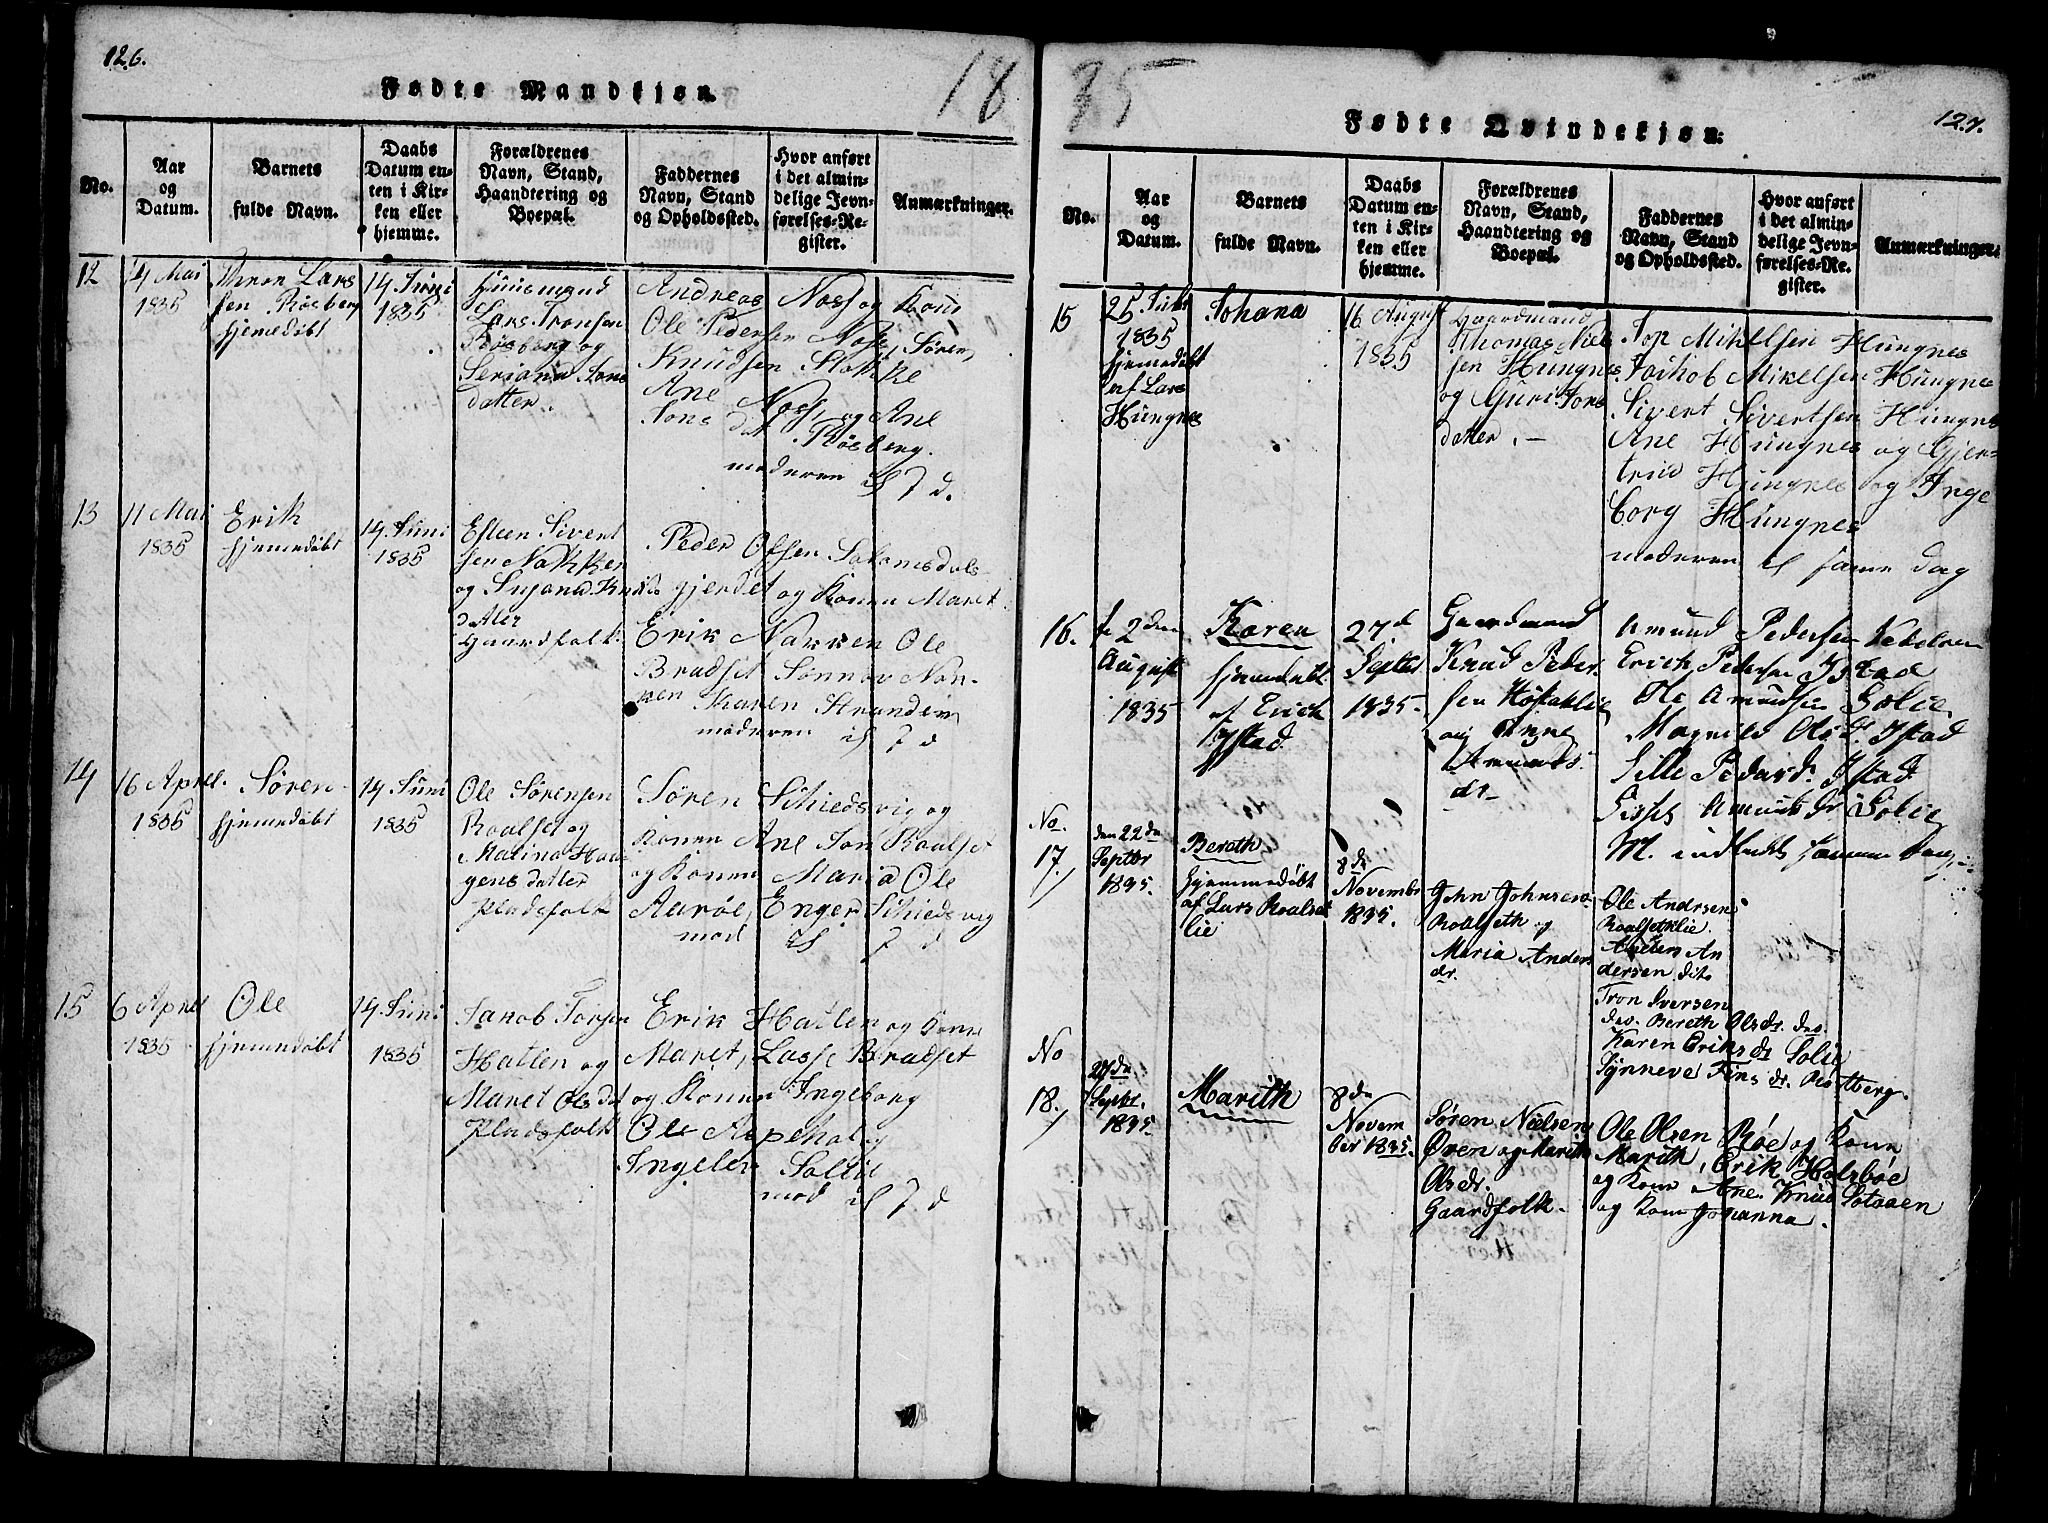 126.
18
Fødte Mandkjøn.
No.
Aar
og
Datum.
Barnets
fulde Navn.
Daabs
Datum en-
ten i Kir-
ken eller
hjemme.
Forældrenes
Navn, Stand,
Haandtering og
Boepæl.
Faddernes
Navn, Stand
og Opholdssted.
Hvor anført
i det almin-
delige Jevn-
førelses-Re-
gister.
Anmærkninger.
12
14 Mai
1835
Lars
sen Røsberg
hjemedøbt
14 Juni
1835
Huusmand
Lars Tronsen
Røsberg og
Seriana Jons
datter.
Andreas Nass og Kone
Ole Pedersen Nass, Søren
Knudsen Stokke
Ane Nass, og Ane
Jons d. Røsberg.
moderen il 7 d.
13
11 Mai
1835
Erik
hjemedøbt
14 Juni
1835
Esten Sivert
sen Nakken
og Knuds
datter
Gaardfolk.
Peder Olsen Salomsdals-
gjerdet og Konen Maret
Erik Nakken Ole
Bradset Sønnov Nak-
ken Karen Stranden
moderen il 7 d
14
16 April
1835
Søren
hjemedøbt
14 Juni
1835
Ole Sørensen
Roalset og
Malina Haa-
gens datter
Pladsfolk
Søren Schiedsvig og
Konen Ane Jon Roalset
og Konen Maria Ole
Aarøe, Enger Schiedsvig
mod il 7 d
15
6 April
1835
Ole
hjemedøbt
14 Juni
1835
Jakob Torsen
Hatlen og
Maret Olsdat
Pladsfolk
Erik Hatlen og Kone
Maret, Lasse Bradset
og Konen Ingeborg
Ole Aspehol og
Ingeler Sollie
mod il 7 d
35
127.
Fødte Qvindekjøn.
No.
Aar
og
Datum.
Barnets
fulde Navn.
Daabs
Datum en-
ten i Kir-
ken eller
hjemme.
Forældrenes
Navn, Stand,
Haandtering og
Boepæl.
Faddernes
Navn, Stand
og Opholdssted.
Hvor anført
i det almin-
delige Jevn-
førelses-Re-
gister.
Anmærkninger.
15
25 Juli
1835
hjemedøbt
af Lars
Hungnes
Johana
16 August
1835
Gaardmand
Thomas Niel
sen Hungnes
og Guri Jons
datter.
Jop Mikelsen Hungnes
Jackob Mikelsen Hungnes
Sivert Sivertsen Hungnes
Ane Hungnes og Gjer-
trud Hungnes og Inge
borg Hungnes
moderen il same dag
16.
2den
August
1835
Karen
hjemedøbt
af Erick
Istad
27d
Septbr
1835.
Gaardmand
Knud Peder
sen Høstaklie
og Anne
Amunds
dr
Amund Pedersen
Erich Pedersen Istad
Ole Amundsen Solie
Magnild Olsdr. Istad
Sille Pedersdr. Istad
Amundsdr Solie
M. indledt samme Dag
No.
17.
den 22de
Septbr
1835.
Bereth
hjemmedøbt
af Lars Roalset
lie
8de
Novembr
1835.
John Johnsen
Roalseth og
Maria Anders
dr.
Ole Andrsen
Roalsethlie.
Anders An
dersen dito
Tron Iversen
do. Bereth Olsdr. do.
Karen Eriksdr Solie
Synneve Finsdr. Røstberg.
No
18.
27de
Septbr.
1835
Marith
8de
Novem
ber 1835.
Søren Nielsen
Øren og Marith
Olsdr.
Gaardfolk.
Ole Olsen Røe og Kone
Marith, Erik Holsbøe
og Kone Ane. Knud Sotaaen
og Kone Johanna.